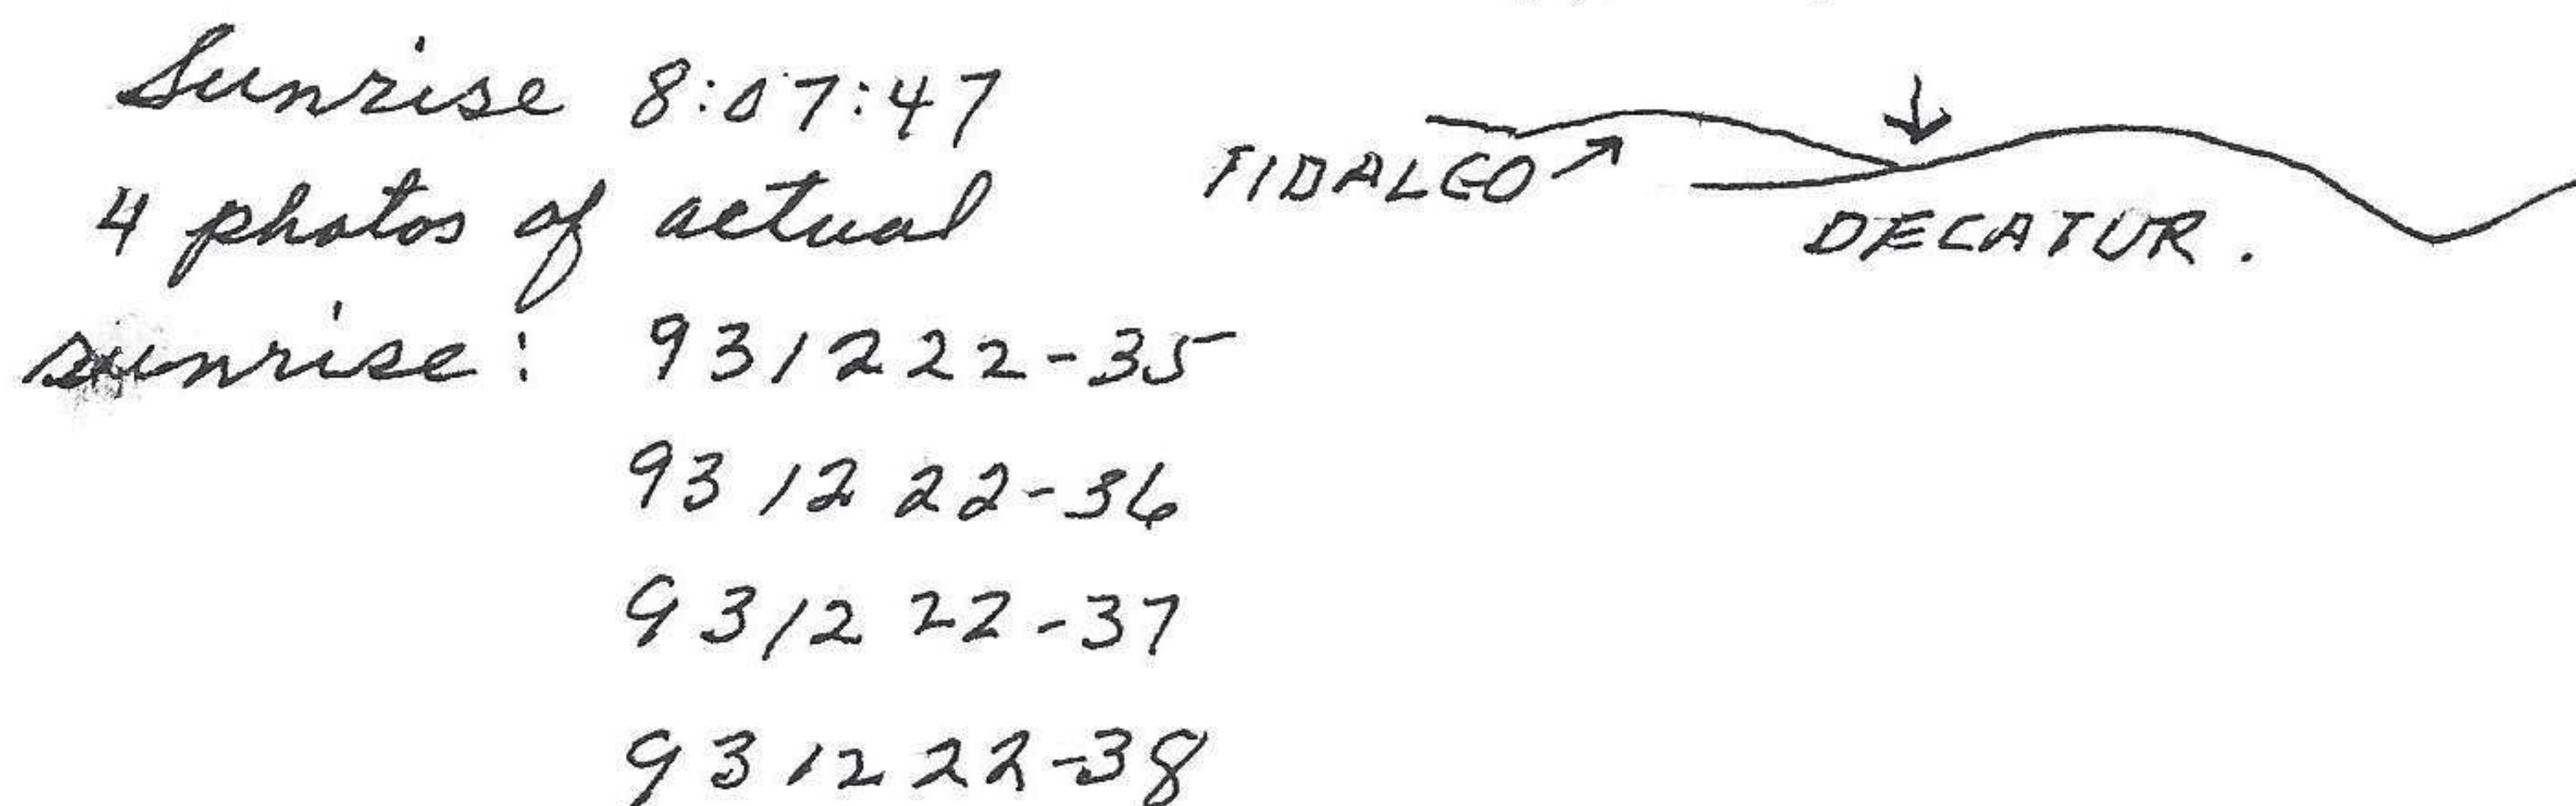 Sunrise 8:07:47
4 photos of actual
sunrise: 931222-35
931222-36
931222-37
931222-38
FIDALGO
DECATUR.